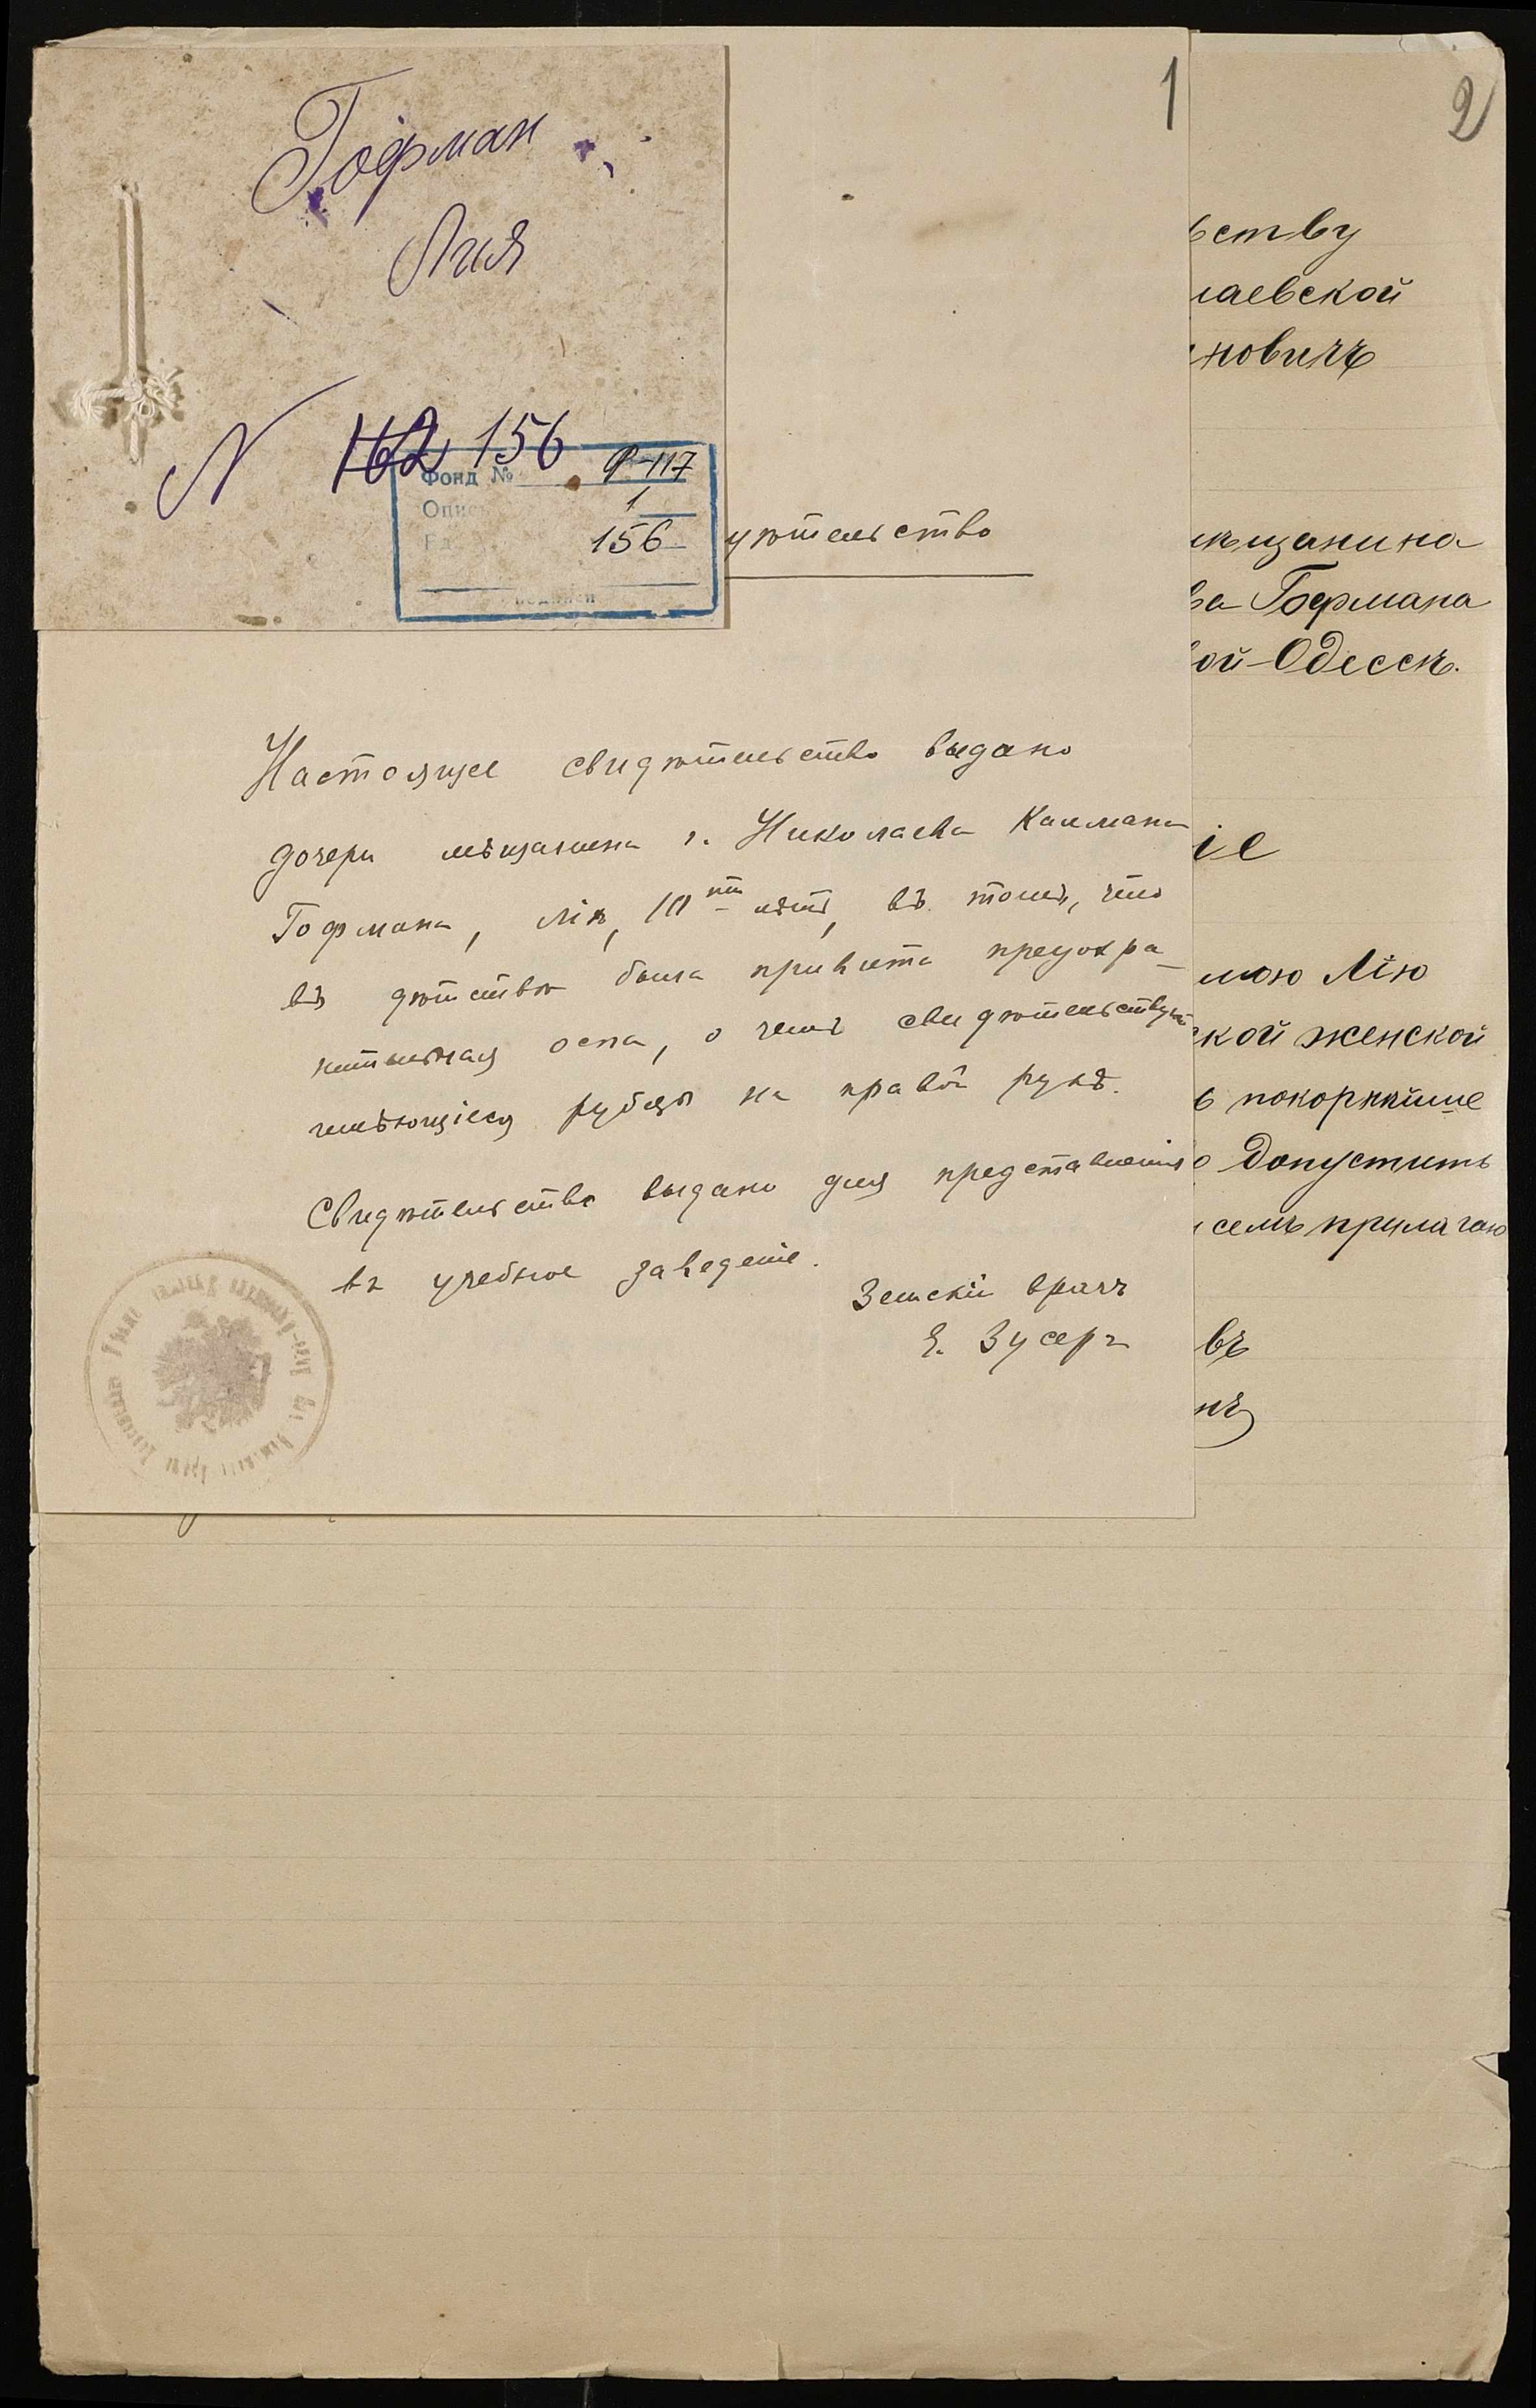 Гофман
Лия
N 162 156
Фонд № Р-117
Опис 1
Ед 156
1
2
ьству
лаевской
новичъ
ѣщанина
ва Гофмана
ой-Одессѣ.
іе
мою Лію
ской женской
ь покорнѣйше
о допустить
семъ прилагаю
въ
нъ
дѣтельство
Настоящее свидѣтельство выдано
дочери мѣщанина г. Николаева Калмана
Гофмана, Ліѣ, лѣтъ, въ томъ, что
въ дѣтствѣ была привита предохра-
нительная оспа, о чемъ свидѣтельствуютъ
имѣющіеся рубцы на правой рукѣ.
Свидѣтельство выдано для представленія
въ учебное заведеніе.
Земскій врачъ
Е. Зусеръ